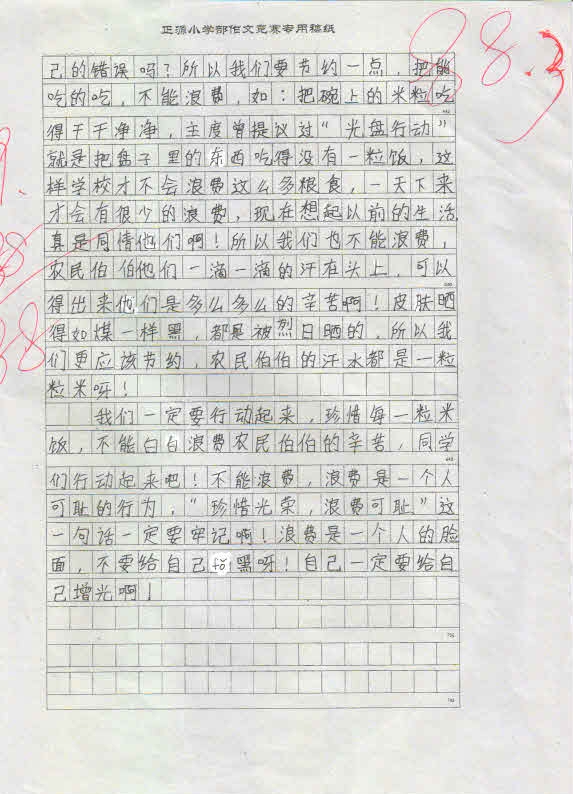 正源小学部作文竞赛专用稿纸
88.3
己的错误吗？所以我们要节约一点，把能
吃的吃，不能浪费，如：把碗上的米粒吃
得干干净净，主度曾提议过“光盘行动”
就是把盘子里的东西吃得没有一粒饭，这
样学校才不会浪费这么多粮食，一天下来
才会有很少的浪费，现在想起以前的生活
真是同情他们啊！所以我们也不能浪费，
农民伯伯他们一滴一滴的汗在头上，可以
得出来他们是多么多么的辛苦啊！皮肤晒
得如煤一样黑，都是被烈日晒的，所以我
们更应该节约，农民伯伯的汗水都是一粒
粒米呀！
我们一定要行动起来，珍惜每一粒米
饭，不能白白浪费农民伯伯的辛苦，同学
们行动起来吧！不能浪费，浪费是一个人
可耻的行为，“珍惜光荣，浪费可耻”这
一句话一定要牢记啊！浪费是一个人的脸
面，不要给自己黑呀！自己一定要给自
己增光啊！